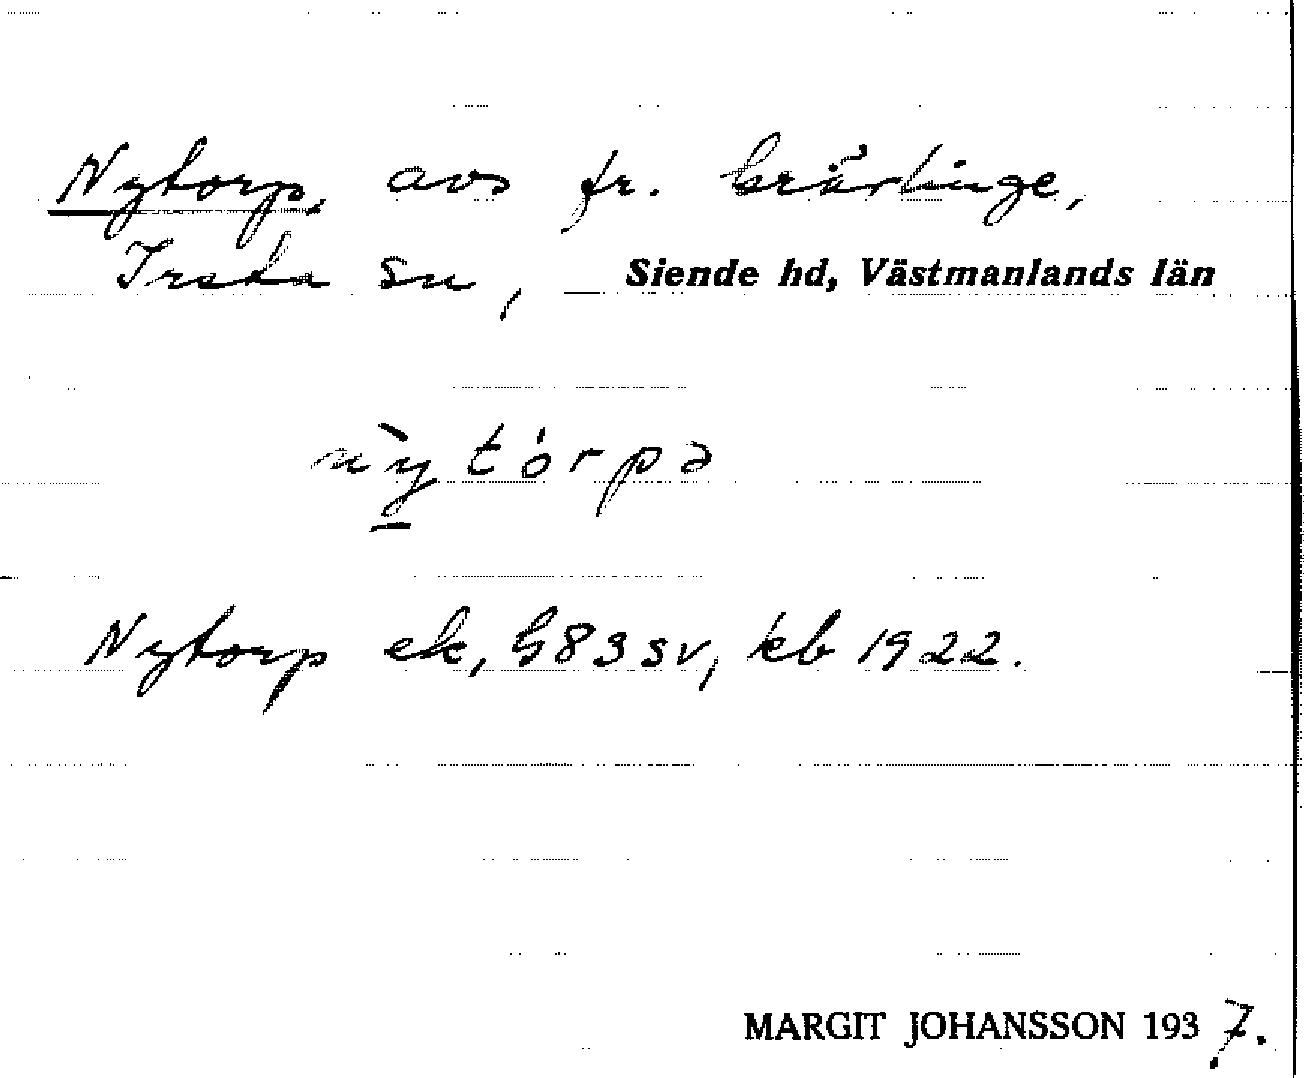 Nytorp, avs fr. Gränlinge,
Irsta sn, Siende hd, Västmanlands län
nỳtórpə
Nytorp ek, G83sv, kb 1922.
MARGIT JOHANSSON 1937.